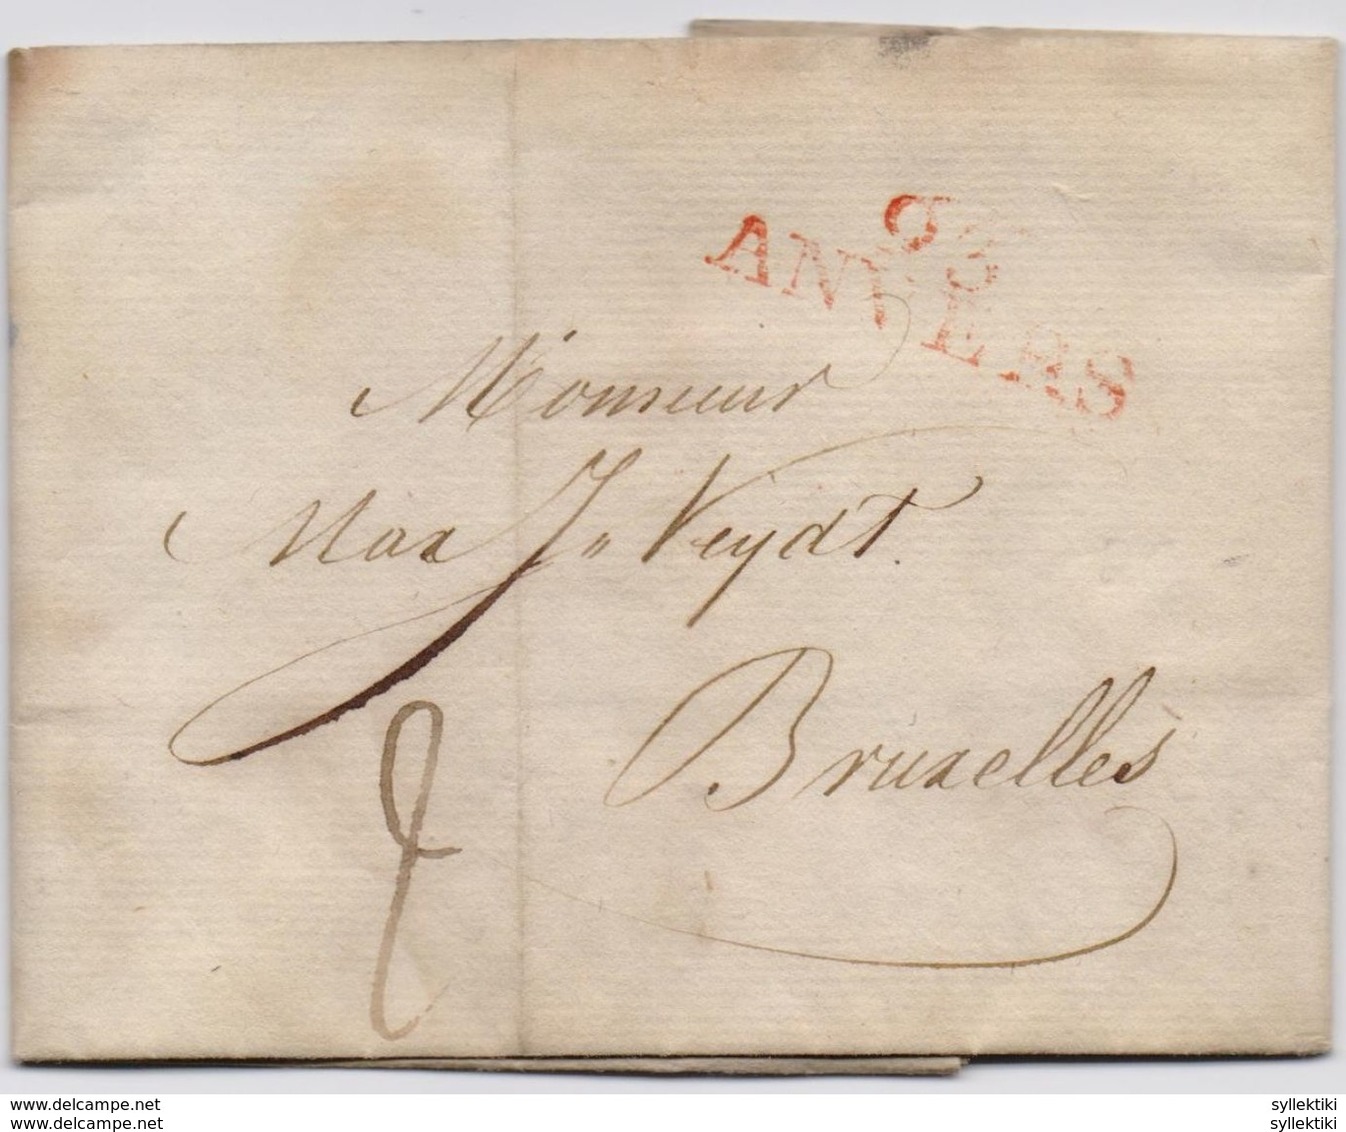 93
ANVERS
Monsieur
Max J„ Veydt.
Bruxelles
www.delcampe.net
www.delcampe.net
syllektiki
syllektiki